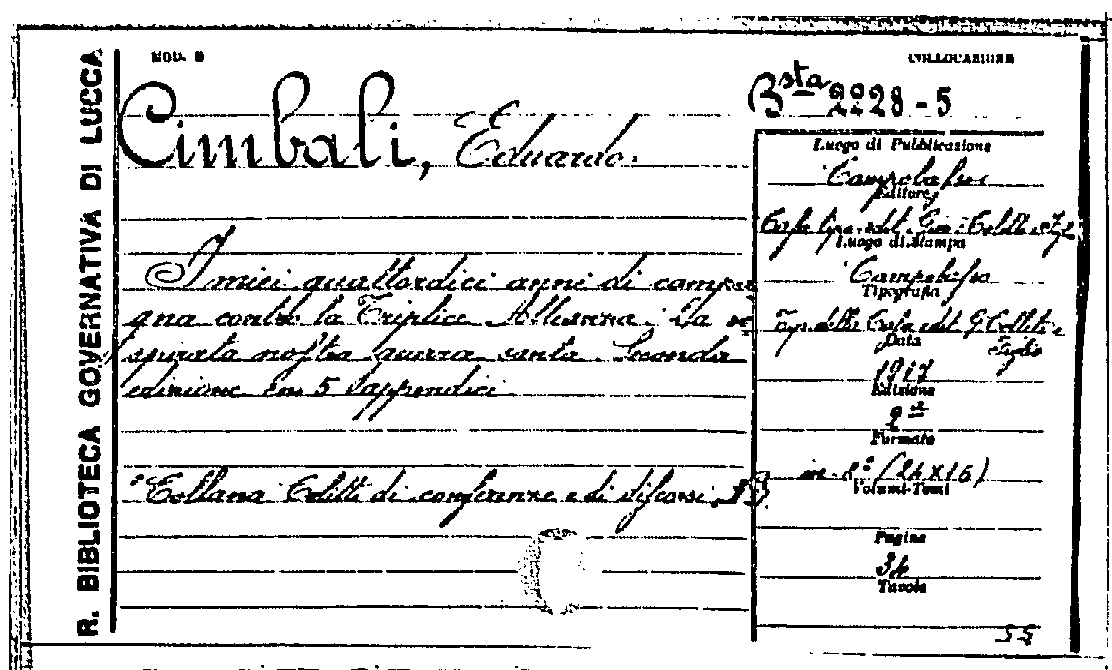 R. BIBLIOTECA GOVERNATIVA DI LUCCA
MOD. B
COLLOCAZIONE
Bsta 2228 - 5
Cimbali, Eduardo.
I miei quattordici anni di campa
gna contro la Triplice Alleanza; La
spurata nostra guerra santa. Seconda
edizione con 5 appendici
"Collana Colitti di conferenze e di discorsi,
Luogo di Pubblicazione
Campobasso
Editore
Casa tip. edit. Giov. Colitti e Figli
Luogo di Stampa
Campobasso
Tipografia
Tip. della Casa edit. G. Colitti e
Figlio
Data
1917
Edizione
2ª
Formato
in-8° (24x16)
Volumi-Tomi
Pagine
34
Tavole
55